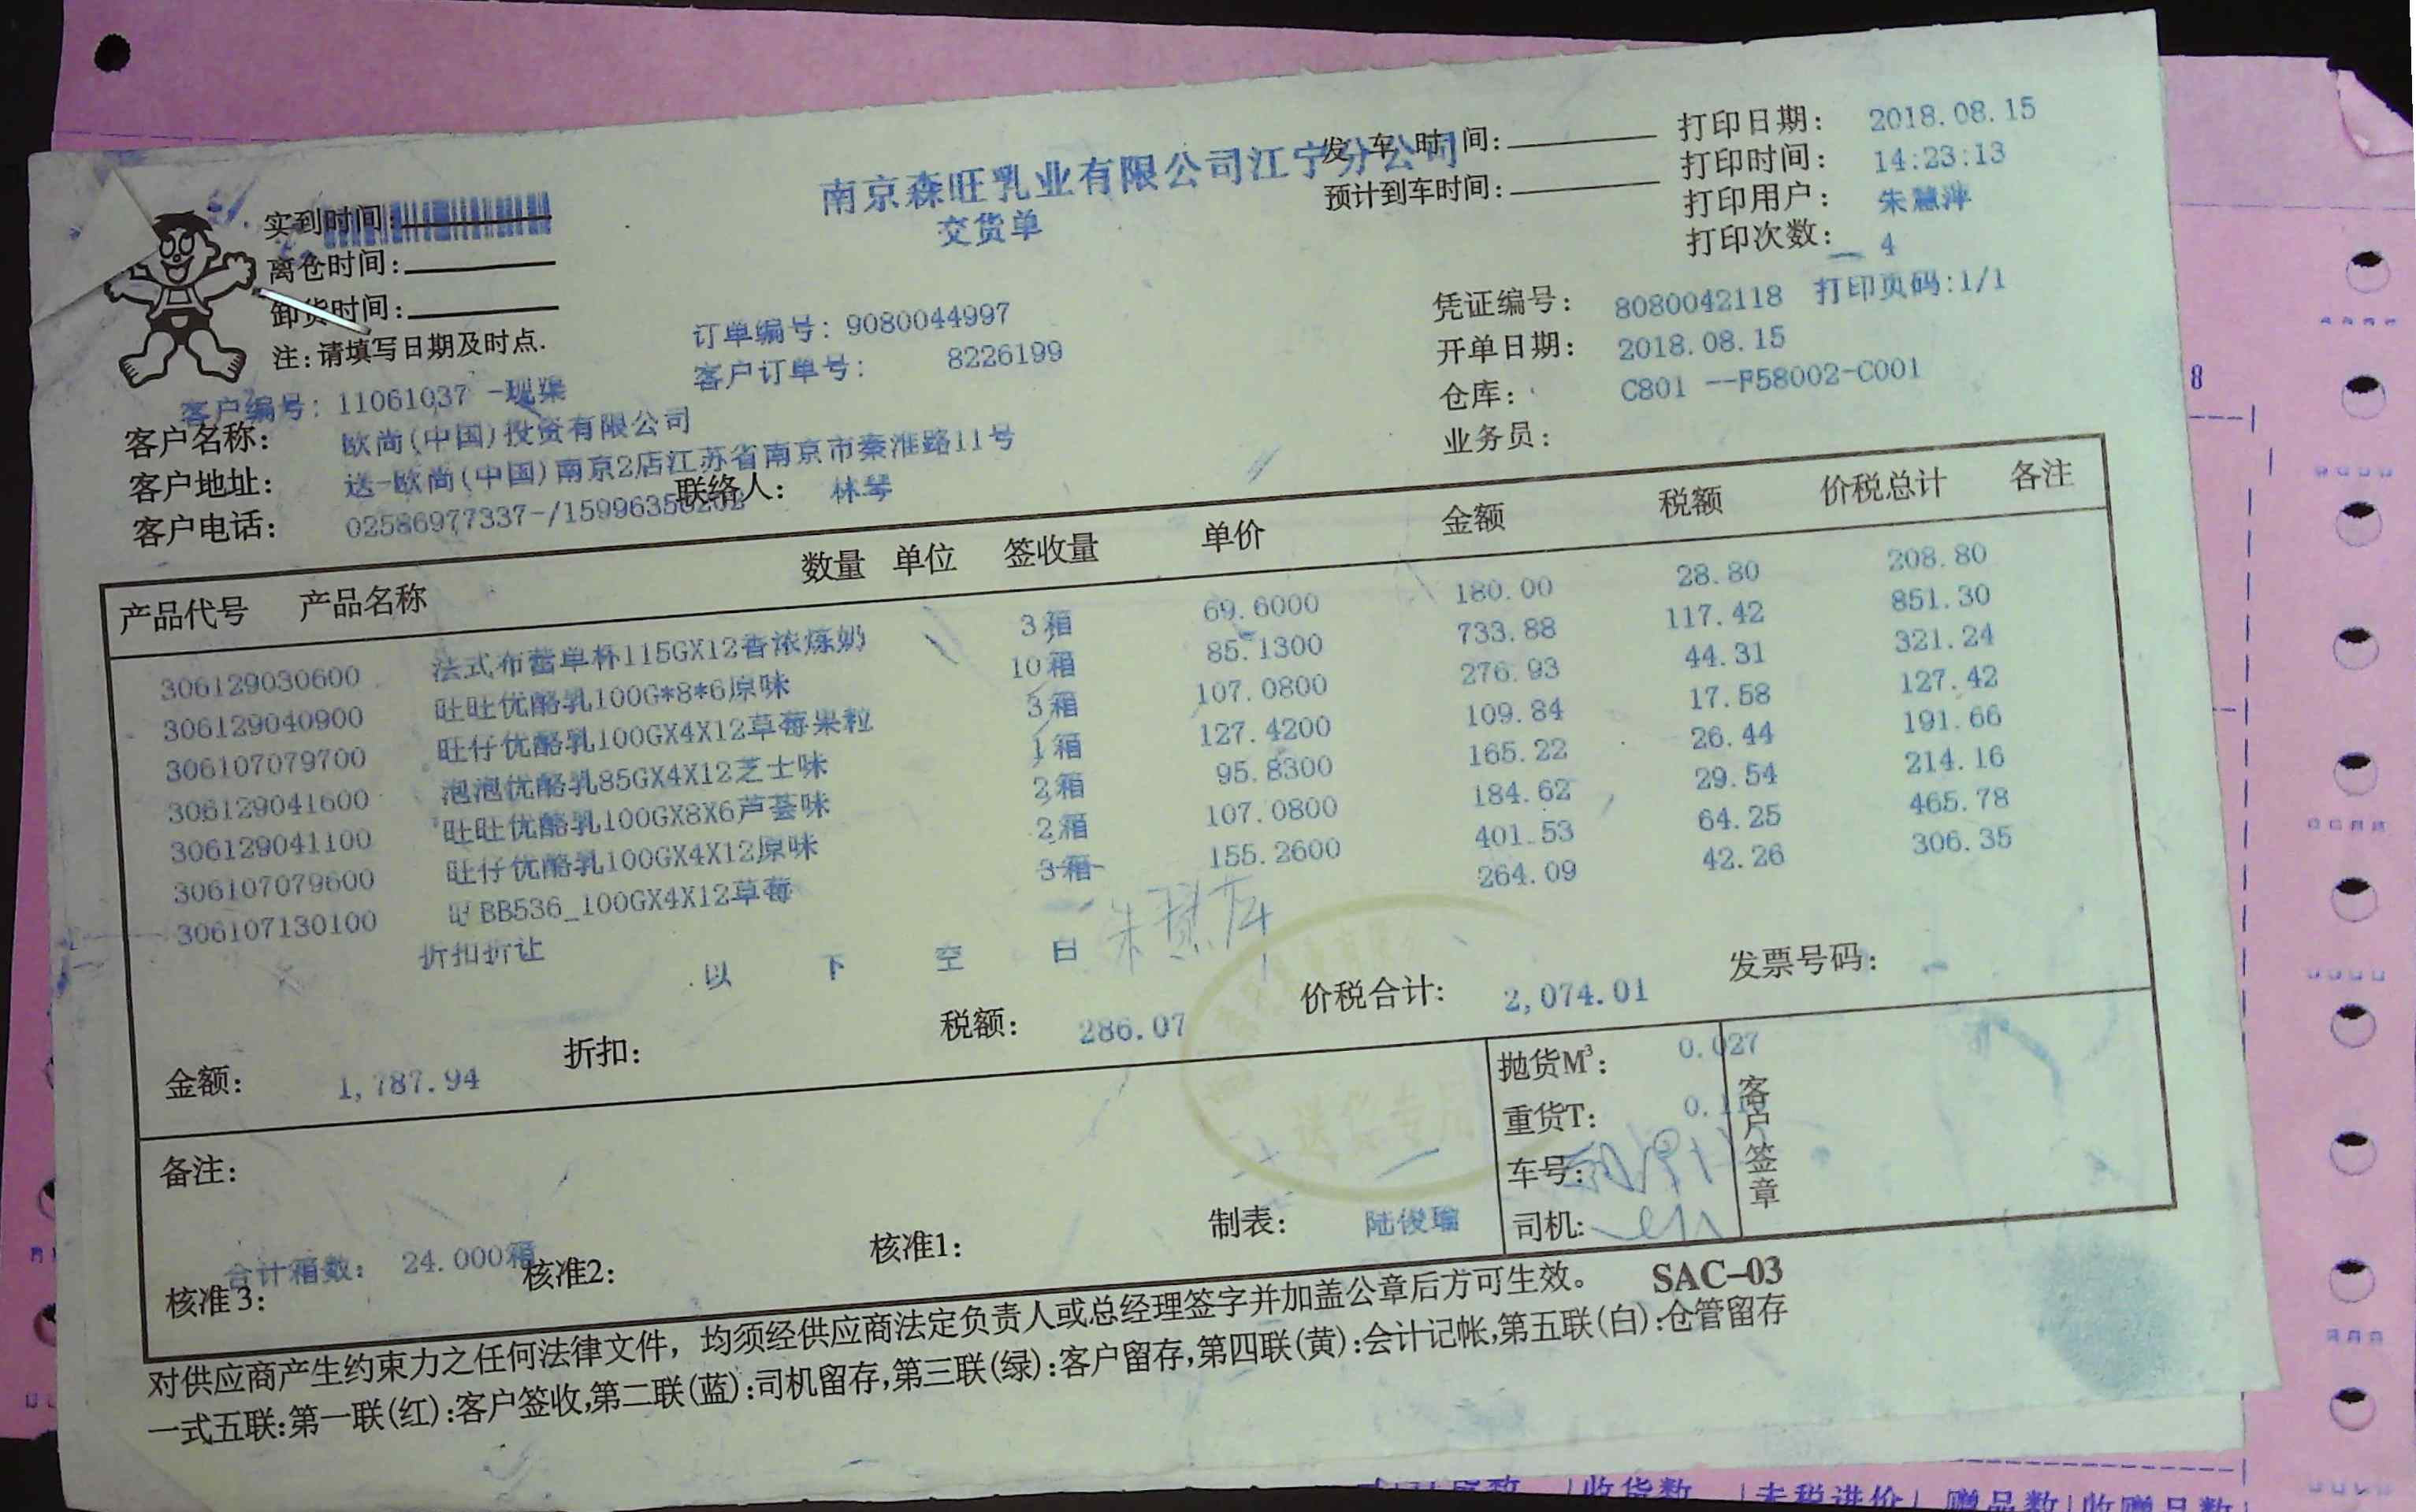 南京森旺乳业有限公司江宁分公司
交货单
发车时间:
预计到车时间:
打印日期: 2018.08.15
打印时间: 14:23:13
打印用户: 朱慧萍
打印次数: 4
实到时间:
离仓时间:
卸货时间:
注:请填写日期及时点.
订单编号: 9080044997
客户订单号: 8226199
凭证编号: 8080042118 打印页码:1/1
开单日期: 2018.08.15
仓库: C801 --P58002-C001
业务员:
客户编号: 11061037 -现渠
客户名称: 欧尚(中国)投资有限公司
客户地址: 送-欧尚(中国)南京2店江苏省南京市秦淮路11号
客户电话: 02586977337-/15996356202 联络人: 林琴
产品代号 产品名称 数量 单位 签收量 单价 金额 税额 价税总计 各注
306129030600 法式布蕾单杯115GX12香浓炼奶 3箱 69.6000 180.00 28.80 208.80
306129040900 旺旺优酪乳100G*8*6原味 10箱 85.1300 733.88 117.42 851.30
306107079700 旺仔优酪乳100GX4X12草莓果粒 3箱 107.0800 276.93 44.31 321.24
306129041600 泡泡优酪乳85GX4X12芝士味 1箱 127.4200 109.84 17.58 127.42
306129041100 旺旺优酪乳100GX8X6芦荟味 2箱 95.8300 165.22 26.44 191.66
306107079600 旺仔优酪乳100GX4X12原味 2箱 107.0800 184.62 29.54 214.16
306107130100 BB536_100GX4X12草莓 3箱 155.2600 401.53 64.25 465.78
折扣折让 264.09 42.26 306.35
以 下 空 白
金额: 1,787.94 折扣: 税额: 286.07 价税合计: 2,074.01 发票号码:
备注:
抛货M³: 0.027
重货T:
车号:
司机:
客户签章
送货专用
合计箱数: 24.000箱
核准3: 核准2: 核准1: 制表: 陆俊瑜
对供应商产生约束力之任何法律文件，均须经供应商法定负责人或总经理签字并加盖公章后方可生效。 SAC-03
一式五联:第一联(红):客户签收,第二联(蓝):司机留存,第三联(绿):客户留存,第四联(黄):会计记帐,第五联(白):仓管留存
8
收货数 未税进价 赠品数 收赠品数